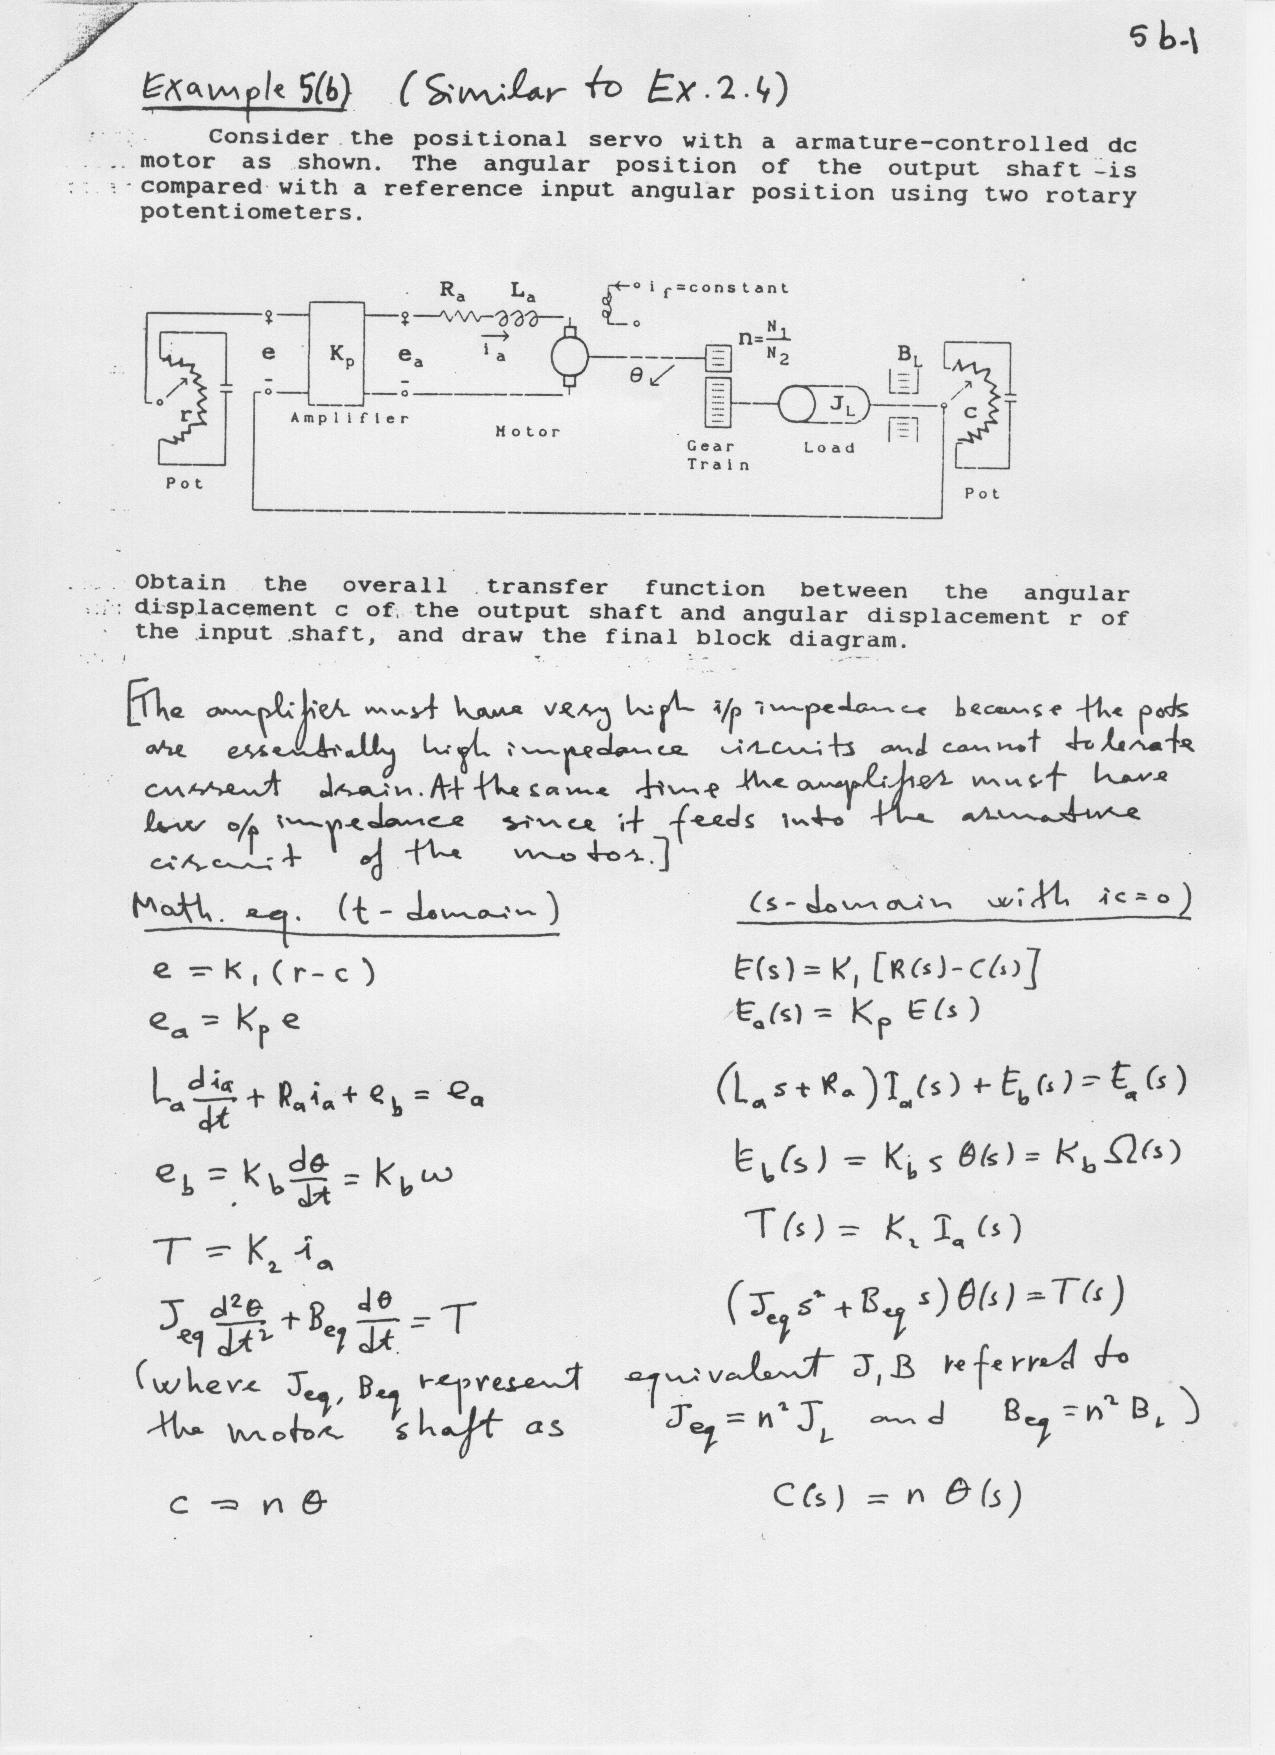 5b-1
Example 5(b) (Similar to Ex.2.4)
Consider the positional servo with a armature-controlled dc
motor as shown. The angular position of the output shaft is
compared with a reference input angular position using two rotary
potentiometers.
Ra La if=constant
e Kp ea ia θ n=N1/N2 BL
r JL c
Amplifier Motor Gear Train Load
Pot Pot
Obtain the overall transfer function between the angular
displacement c of the output shaft and angular displacement r of
the input shaft, and draw the final block diagram.
[The amplifier must have very high i/p impedance because the pots
are essentially high impedance circuits and cannot tolerate
current drain. At the same time the amplifier must have
low o/p impedance since it feeds into the armature
circuit of the motor.]
Math. eq. (t-domain) (s-domain with ic=0)
e = K₁(r-c) E(s) = K₁[R(s)-C(s)]
ea = Kp e Ea(s) = Kp E(s)
La dia/dt + Ra ia + eb = ea (La s + Ra) Ia(s) + Eb(s) = Ea(s)
eb = Kb dθ/dt = Kb ω Eb(s) = Kb s θ(s) = Kb Ω(s)
T = K₂ ia T(s) = K₂ Ia(s)
Jeq d²θ/dt² + Beq dθ/dt = T (Jeq s² + Beq s) θ(s) = T(s)
(where Jeq, Beq represent equivalent J, B referred to
the motor shaft as Jeq = n² JL and Beq = n² BL)
c = nθ C(s) = n θ(s)